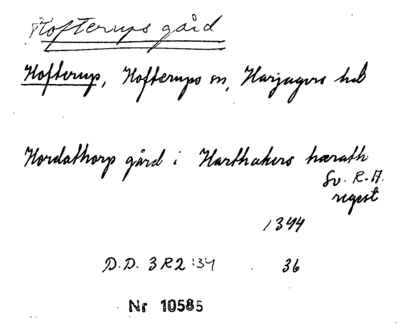 Hofterups gård
Hofterup, Hofterups sn, Harjagers hd
Hordathorp gård i Harthakers hærath
Sv. R.A.
regest
1344
D.D. 3R2:34 36
Nr 10585